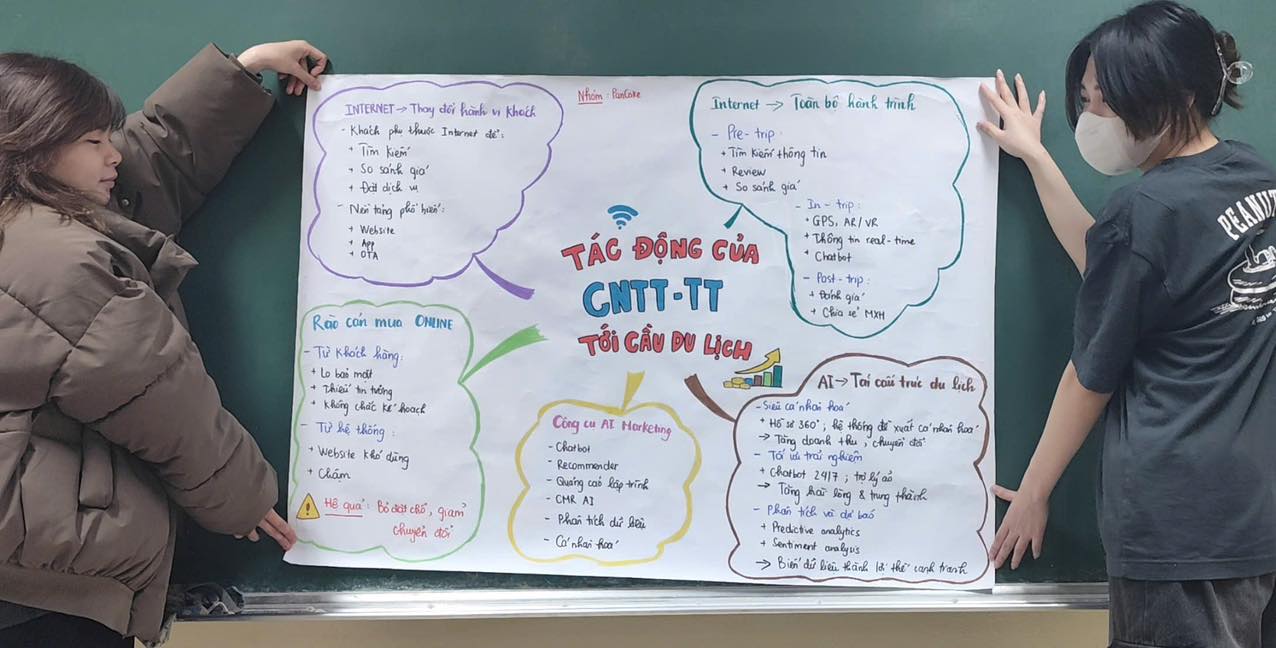 Nhóm : PanCake
INTERNET → Thay đổi hành vi khách
- Khách phụ thuộc Internet để :
+ Tìm kiếm
+ So sánh giá
+ Đặt dịch vụ
- Nền tảng phổ biến :
+ Website
+ App
+ OTA
Internet → Toàn bộ hành trình
- Pre - trip :
+ Tìm kiếm thông tin
+ Review
+ So sánh giá
- In - trip :
+ GPS, AR / VR
+ Thông tin real - time
+ Chatbot
- Post - trip :
+ Đánh giá
+ Chia sẻ MXH
TÁC ĐỘNG CỦA
CNTT - TT
TỚI CẦU DU LỊCH
Rào cản mua ONLINE
- Từ khách hàng :
+ Lo bảo mật
+ Thiếu tin tưởng
+ Không chắc kế hoạch
- Từ hệ thống :
+ Website khó dùng
+ Chậm
Hệ quả : Bỏ đặt chỗ, giảm
chuyển đổi
Công cụ AI Marketing
- Chatbot
- Recommender
- Quảng cáo lập trình
- CMR AI
- Phân tích dữ liệu
- Cá nhân hoá
AI → Tái cấu trúc du lịch
- Siêu cá nhân hoá
+ Hồ sơ 360° ; hệ thống đề xuất cá nhân hoá
→ Tăng doanh thu, chuyển đổi
- Tối ưu trải nghiệm
+ Chatbot 24/7 ; trợ lý ảo
→ Tăng hài lòng & trung thành
- Phân tích và dự báo
+ Predictive analytics
+ Sentiment analysis
→ Biến dữ liệu thành lợi thế cạnh tranh
PEANUT